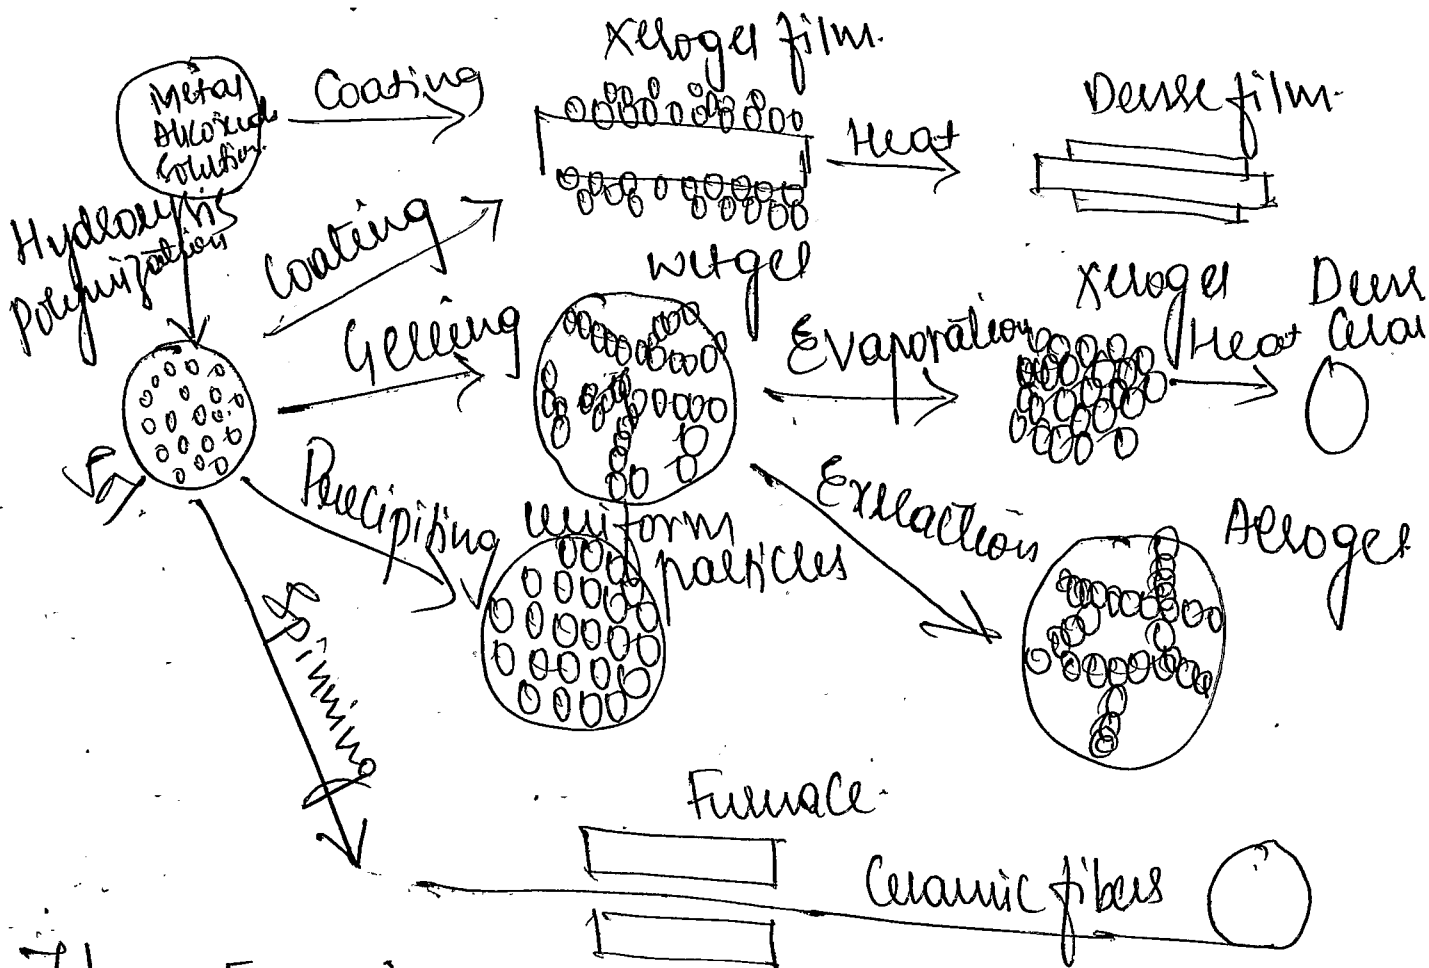 Xerogel film.
Metal
Alkoxide
Solution.
Coating
Heat
Dense film.
Hydrolysis
Polymization
Coating
Wetgel
Gelleing
Evaporation
Xerogel
Heat
Dense
Cerai
Precipiting
uniform
particles
Extraction
Aerogel
Furnace.
Ceramic fibers